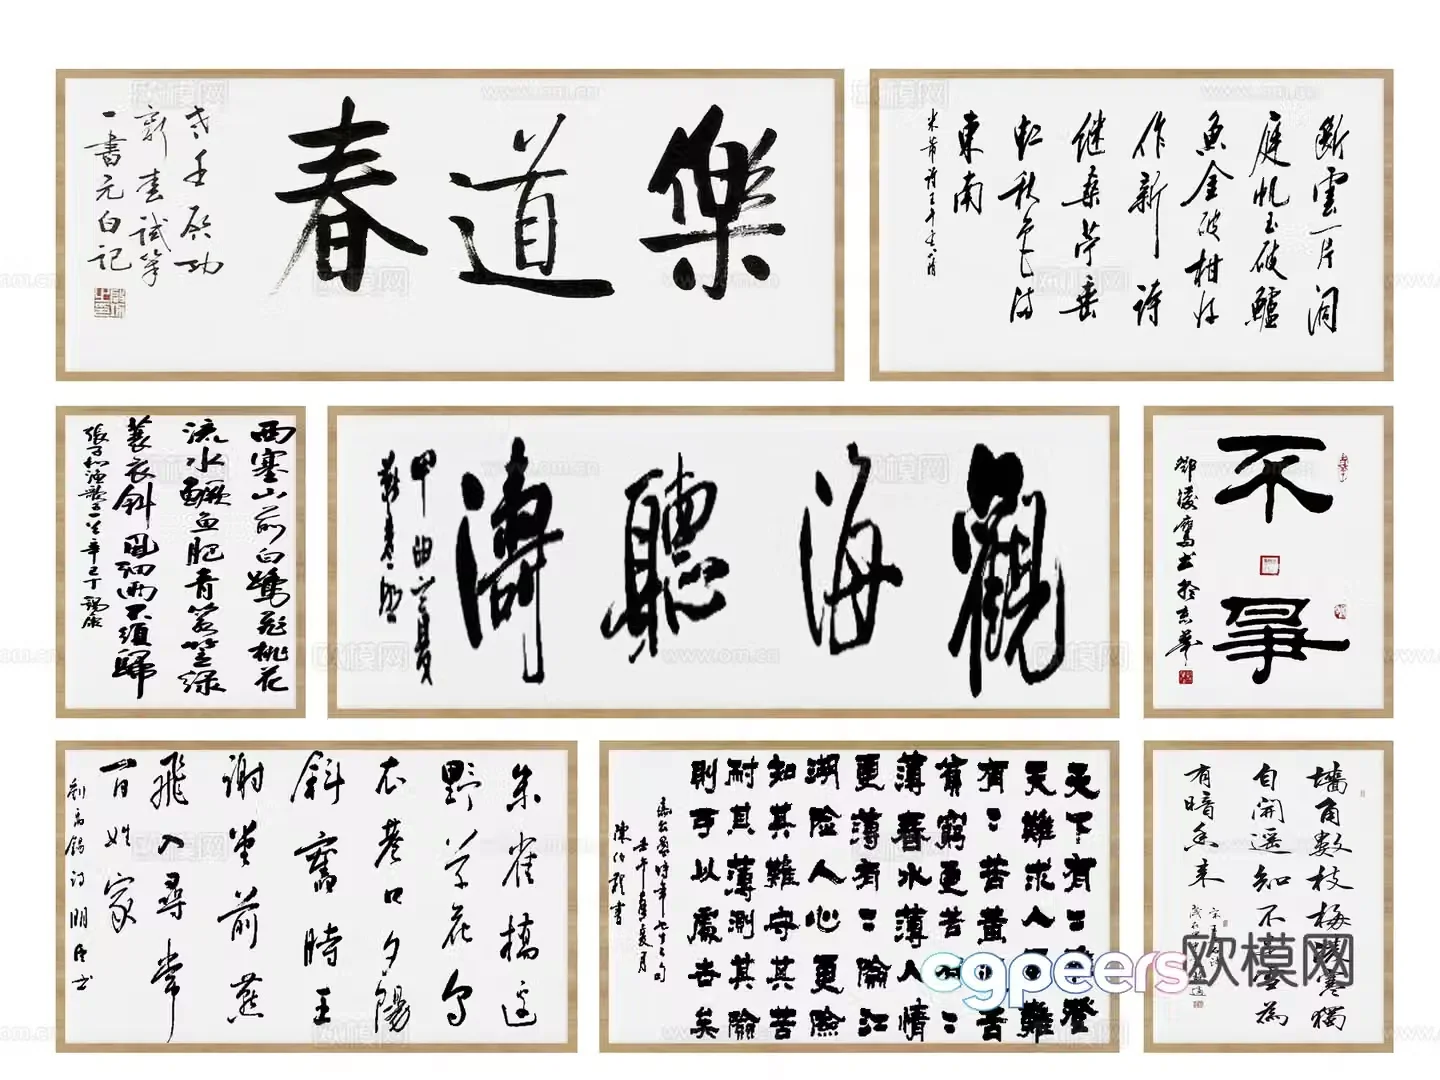 樂道春
新春試筆
書元白記
斷雲一片洞
庭帆玉破鱸
魚金破柑好
作新詩
继桑苧垂
虹秋色满
東南
米芾詩壬午
西塞山前白鷺飛桃花
流水鱖魚肥青箬笠绿
蓑衣斜風細雨不須歸
觀海聽濤
不爭
朱雀橋邊
野草花烏
衣巷口夕陽
斜舊時王
謝堂前燕
飛入尋常
百姓家
劉禹錫詩
天下有二難登
天難求人更難
有二苦黄連苦
貧窮更苦有二
薄春冰薄人情
更薄有二險江
湖險人心更險
知其難守其苦
耐其薄測其險
則可以處世矣
墙角數枝梅凌寒獨
自開遥知不是雪為
有暗香来
cgpeers
欧模网
www.om.cn